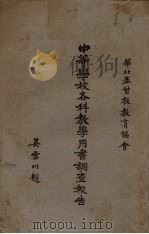 華北基督教教育協會
中等學校各科教學用書調查報告
吴雷川題